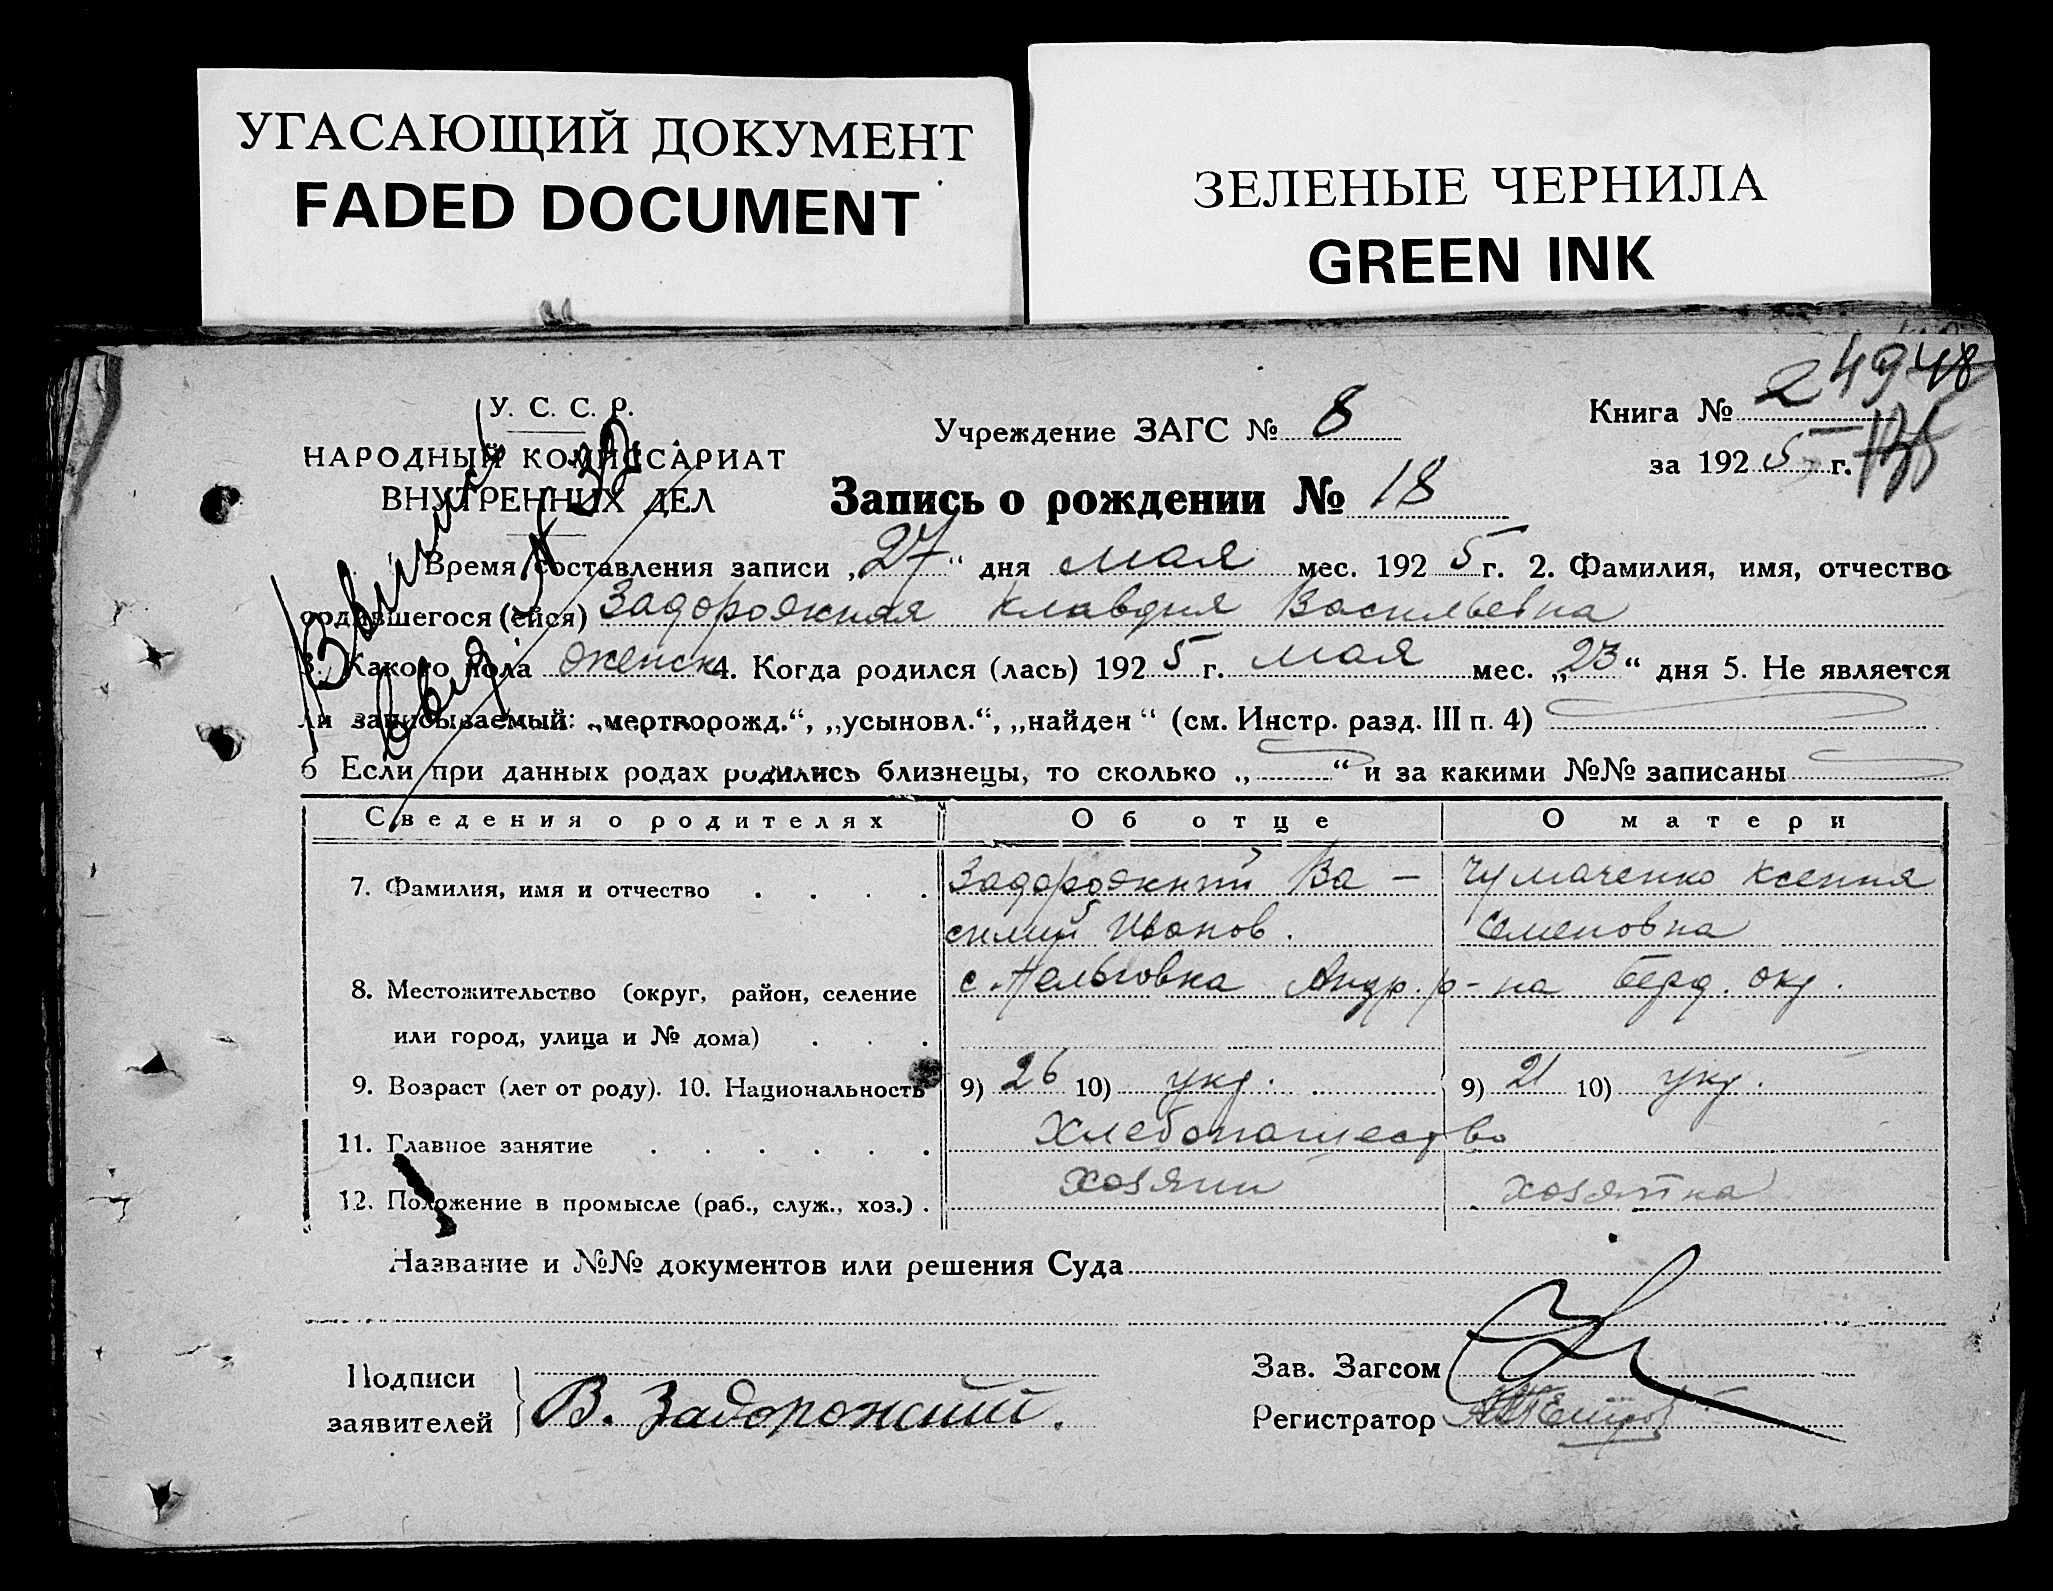 УГАСАЮЩИЙ ДОКУМЕНТ
FADED DOCUMENT
ЗЕЛЕНЫЕ ЧЕРНИЛА
GREEN INK
У. С. С. Р.
НАРОДНЫЙ КОМИССАРИАТ
ВНУТРЕННИХ ДЕЛ
Учреждение ЗАГС № 8
Книга № 2
за 1925 г.
Запись о рождении № 18
Время составления записи „27“ дня мая мес. 1925 г. 2. Фамилия, имя, отчество
родившегося (ейся) Задорожная Клавдия Васильевна
3. Какого пола женск 4. Когда родился (лась) 1925 г. мая мес. „23“ дня 5. Не является
ли записываемый: „мертворожд.“, „усыновл.“, „найден“ (см. Инстр. разд. III п. 4)
6 Если при данных родах родились близнецы, то сколько „ “ и за какими №№ записаны
Сведения о родителях Об отце О матери
7. Фамилия, имя и отчество Задорожний Ва- Чумаченко Ксения
силий Иванов. Семеновна
8. Местожительство (округ, район, селение с. Нельговка Андр. р-на Берд. окр.
или город, улица и № дома)
9. Возраст (лет от роду). 10. Национальность 9) 26 10) укр. 9) 21 10) укр.
11. Главное занятие Хлебопашество
12. Положение в промысле (раб., служ., хоз.) хозяин хозяйка
Название и №№ документов или решения Суда
Подписи
заявителей В. Задорожний.
Зав. Загсом
Регистратор